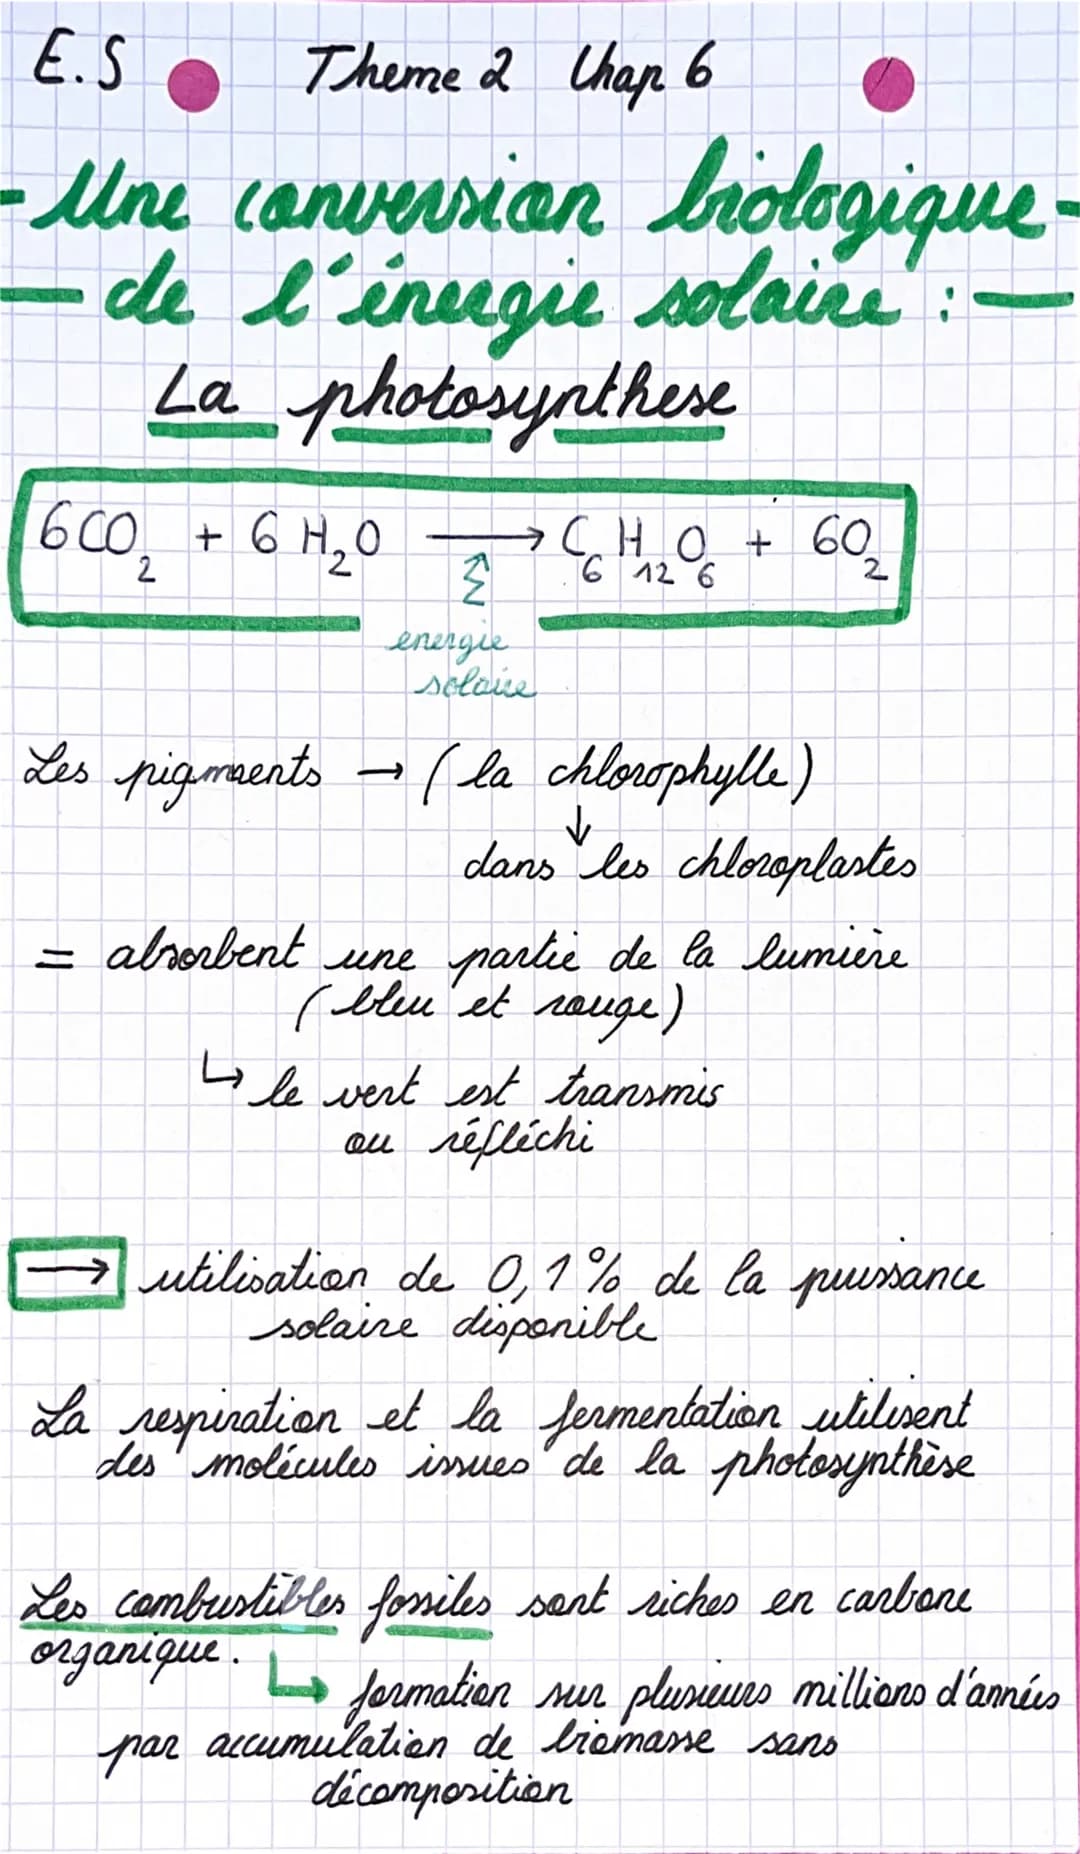 E.S Theme 2 Chap 6
- Une conversion biologique -
- de l'énergie solaire : -
La photosynthese
6CO₂ + 6 H₂O → C₆H₁₂O₆ + 6O₂
energie
solaire
Les pigments → (la chlorophylle)
↓
dans les chloroplastes
= absorbent une partie de la lumière
(bleu et rouge)
↳ le vert est transmis
ou réfléchi
→ utilisation de 0,1% de la puissance
solaire disponible
La respiration et la fermentation utilisent
des molécules issues de la photosynthèse
Les combustibles fossiles sont riches en carbone
organique.
↳ formation sur plusieurs millions d'années
par accumulation de biomasse sans
décomposition